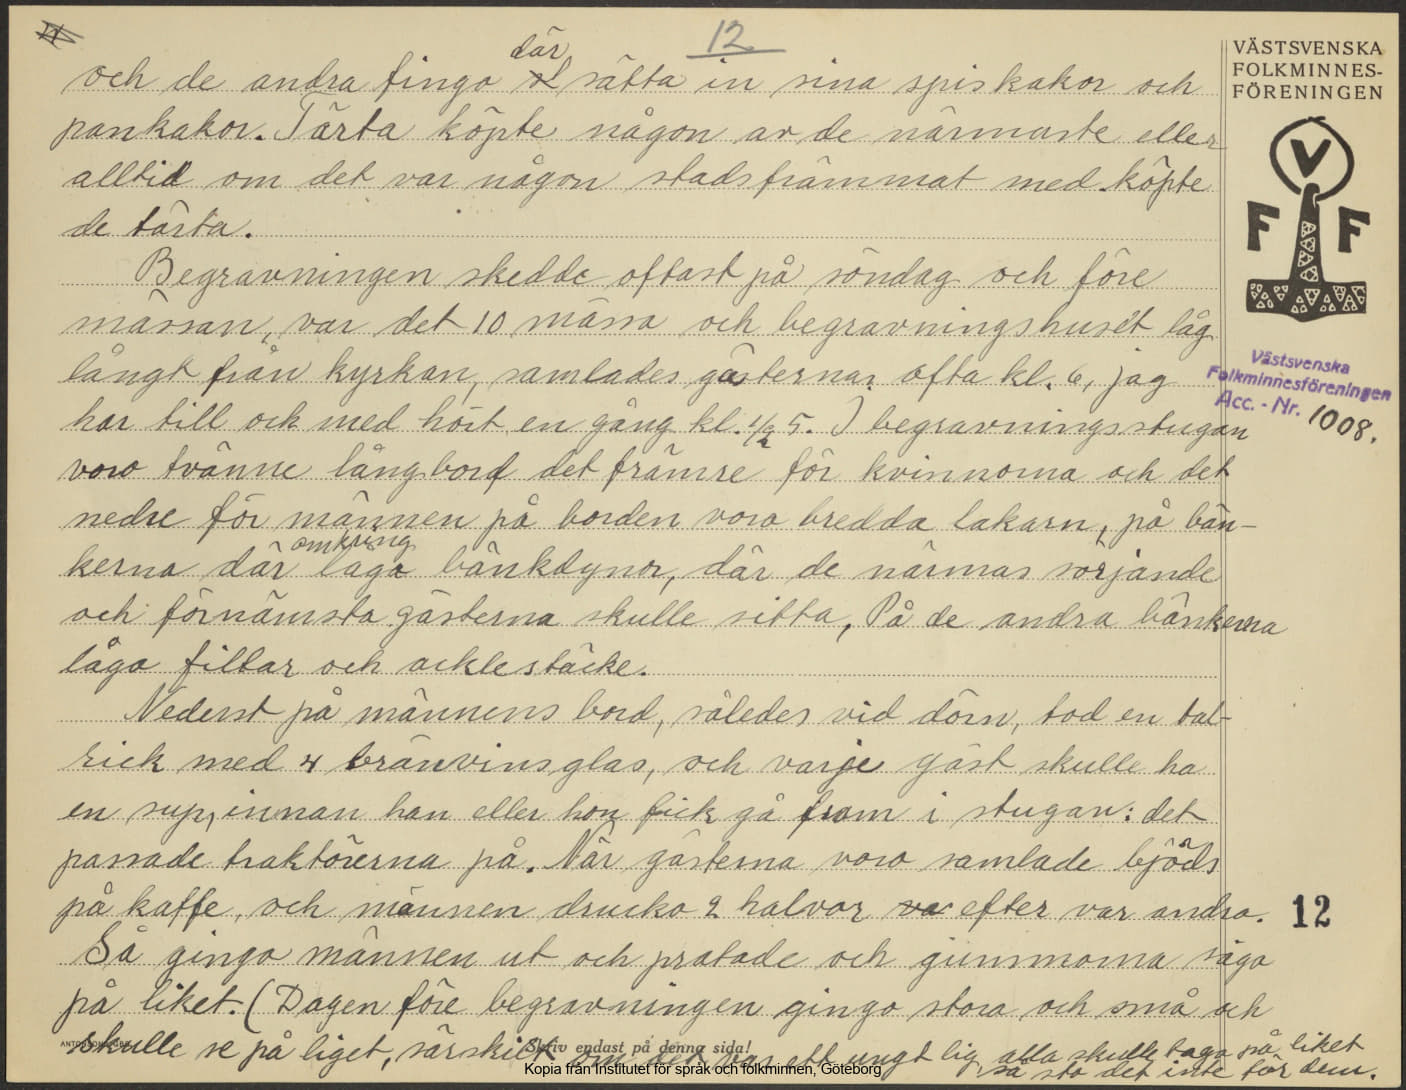 12
VÄSTSVENSKA
FOLKMINNES-
FÖRENINGEN
V
F F
Västsvenska
Folkminnesföreningen
Acc. - Nr. 1008.
och de andra fingo där sätta in sina spiskakor och
pankakor. Tärta köpte någon av de närmaste eller
alltid om det var någon stadsfrämmat med köpte
de tärta.
Begravningen skedde oftast på söndag och före
mässan, var det 10 mässa och begravningshuset låg
långt från kyrkan, samlades gästerna ofta kl. 6, jag
har till ock med hört en gång kl. 1/2 5. I begravningsstugan
voro tvänne långbord det främre för kvinnorna och det
nedre för männen på borden voro bredda lakarn, på bän-
kerna där omkring lågo bänkdynor, där de närmas sörjande
och förnämsta gästerna skulle sitta, På de andra bänkerna
lågo filtar och acklestäcke.
Nederst på männens bord, således vid dörn, stod en tal-
rick med 4 bränvinsglas, och varje gäst skulle ha
en sup, innan han eller hon fick gå fram i stugan: det
passade traktörerna på. När gästerna voro samlade bjöds
på kaffe, och männen drucko 2 halvor efter var andra.
Så gingo männen ut och pratade och gummorna sågo
på liket. (Dagen före begravningen gingo stora och små och
skulle se på liget, särskilt om det var ett ungt lig, alla skulle taga på liket
så sto det inte för dem.
12
Skriv endast på denna sida!
Kopia från Institutet för språk och folkminnen, Göteborg